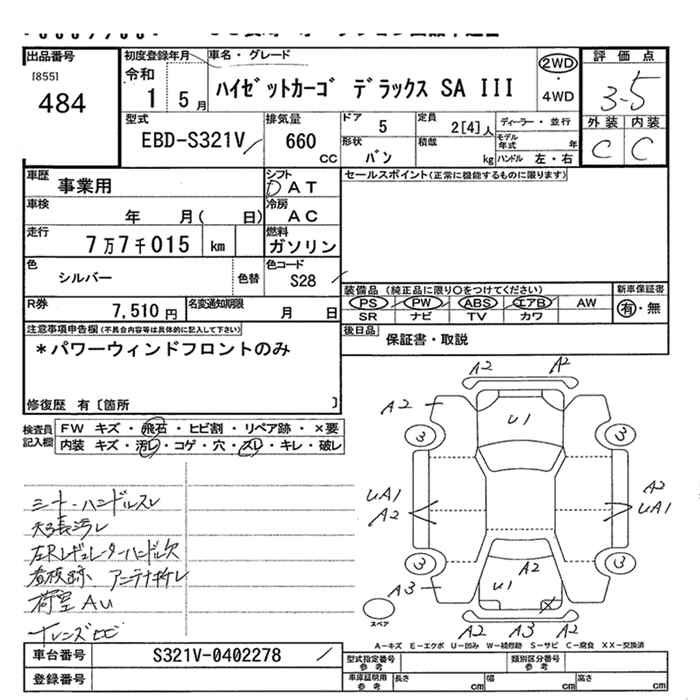 出品番号
[855]
484
初度登録年月
令和
1 5 月
車名・グレード
ハイゼットカーゴ デラックス SA III
2WD・4WD
評価点
3-5
外装 内装
C C
型式
EBD-S321V
排気量
660 cc
ドア
5
定員
2[4]人
形状
バン
積載
kg
ディーラー・並行
モデル年式 年
ハンドル 左・右
車歴
事業用
シフト
D AT
車検
年 月( 日)
冷房
AC
走行
7万7千015 km
燃料
ガソリン
色
シルバー
色替
色コード
S28
R券
7,510 円
名変通知期限
月 日
セールスポイント(正常に機能するものに限ります)
装備品 (純正品に限り○をつけてください)
PS PW ABS エアB AW
SR ナビ TV カワ
新車保証書
有・無
後日品
保証書・取説
注意事項申告欄(不具合内容等は具体的に記入して下さい)
*パワーウィンドフロントのみ
修復歴 有〔箇所 〕
検査員記入欄
FW キズ・飛石・ヒビ割・リペア跡・×要
内装 キズ・汚レ・コゲ・穴・スレ・キレ・破レ
シート・ハンドルスレ
天張汚レ
左Rレギュレーターハンドル欠
看板跡 アンテナキレ
荷室AU
A2 A2
A2
U1
3 3
UA1
A2
A2
UA1
3 3
A2
U1
A3
A2
A2 A3 A2
スペア
A-キズ E-エクボ U-凹み W-補修跡 S-サビ C-腐食 XX-交換済
車台番号
S321V-0402278
登録番号
型式指定番号 参考
類別区分番号 参考
車庫証明用 参考
長さ cm
幅 cm
高さ cm